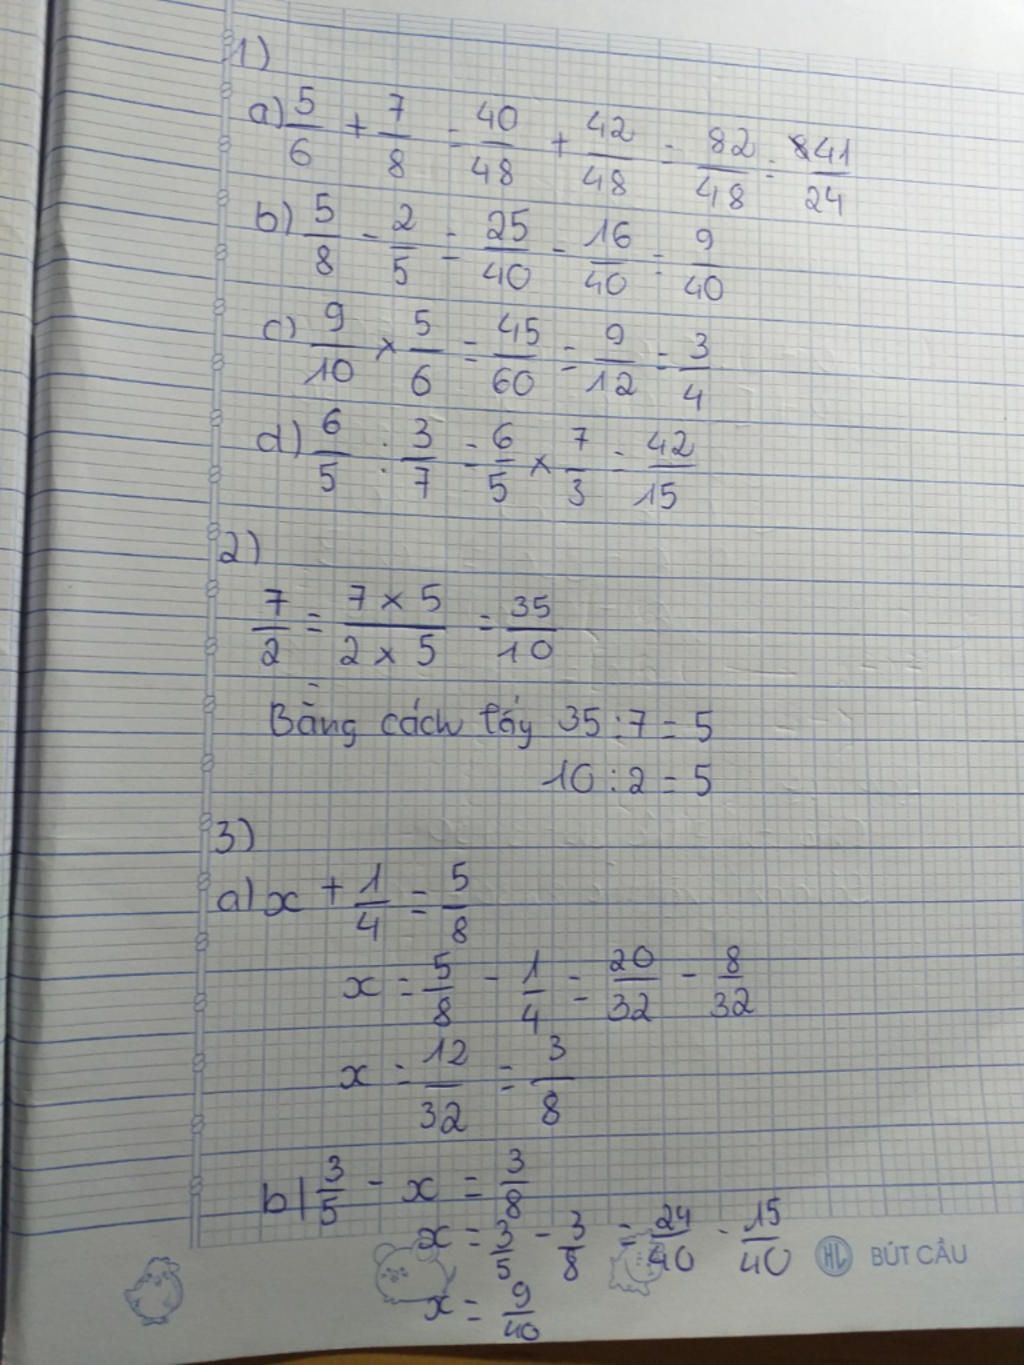 1)
a) 5/6 + 7/8 = 40/48 + 42/48 = 82/48 = 41/24
b) 5/8 - 2/5 = 25/40 - 16/40 = 9/40
c) 9/10 × 5/6 = 45/60 = 9/12 = 3/4
d) 6/5 : 3/7 = 6/5 × 7/3 = 42/15
2)
7/2 = 7 × 5/2 × 5 = 35/10
Bằng cách lấy 35 : 7 = 5
10 : 2 = 5
3)
a) x + 1/4 = 5/8
x = 5/8 - 1/4 = 20/32 - 8/32
x = 12/32 = 3/8
b) 3/5 - x = 3/8
x = 3/5 - 3/8 = 24/40 - 15/40
x = 9/40
HL BÚT CÂU